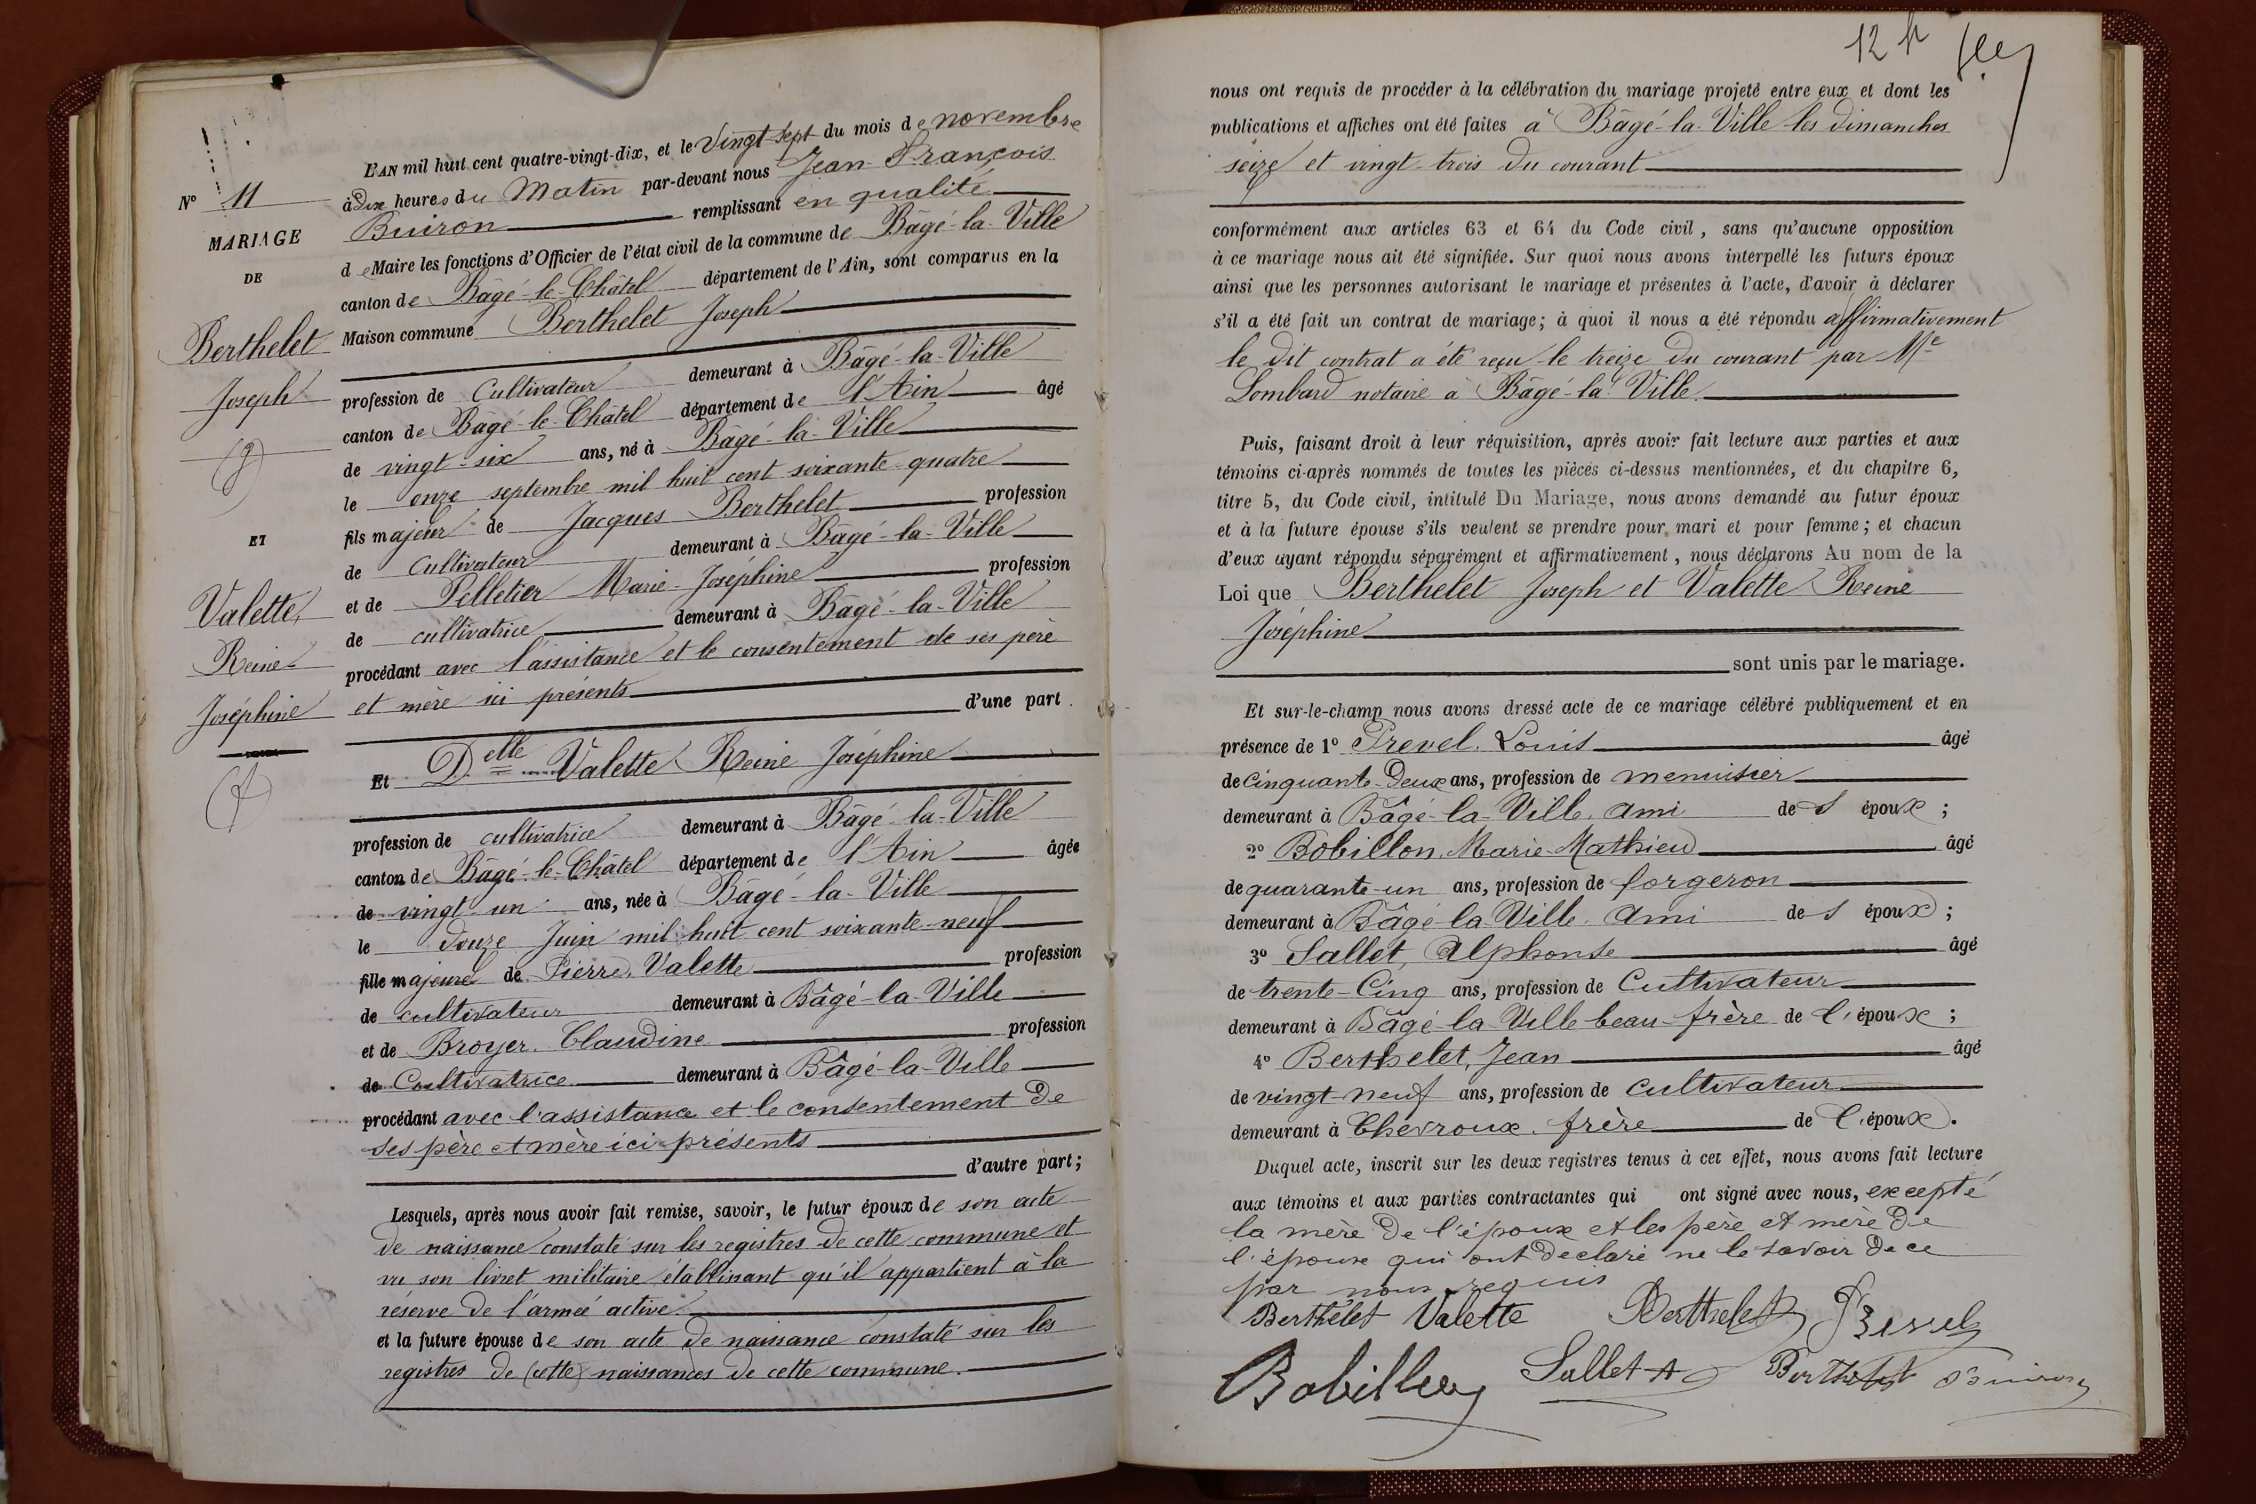 L'AN mil huit cent quatre-vingt-dix, et le Vingt-sept du mois de novembre
N° 11
à Dix heures du Matin par-devant nous Jean-François
Buiron remplissant en qualité
MARIAGE
DE
de Maire les fonctions d'Officier de l'état civil de la commune de Bâgé-la-Ville
canton de Bâgé-le-Châtel département de l'Ain, sont comparus en la
Maison commune Berthelet Joseph
Berthelet
Joseph
profession de Cultivateur demeurant à Bâgé-la-Ville
canton de Bâgé-le-Châtel département de l'Ain âgé
de vingt-six ans, né à Bâgé-la-Ville
le onze septembre mil huit cent soixante-quatre
fils majeur de Jacques Berthelet profession
ET
de Cultivateur demeurant à Bâgé-la-Ville
et de Pelletier Marie-Joséphine profession
Valette,
Reine
Joséphine
de cultivatrice demeurant à Bâgé-la-Ville
procédant avec l'assistance et le consentement de ses père
et mère ici présents
d'une part.
Et D.elle Valette Reine Joséphine
profession de cultivatrice demeurant à Bâgé-la-Ville
canton de Bâgé-le-Châtel département de l'Ain âgée
de vingt-un ans, née à Bâgé-la-Ville
le douze Juin mil huit cent soixante-neuf
fille majeure de Pierre Valette profession
de cultivateur demeurant à Bâgé-la-Ville
et de Broyer Claudine profession
de Cultivatrice demeurant à Bâgé-la-Ville
procédant avec l'assistance et le consentement de
ses père et mère ici présents
d'autre part;
Lesquels, après nous avoir fait remise, savoir, le futur époux de son acte
de naissance constaté sur les registres de cette commune et
vu son livret militaire établissant qu'il appartient à la
réserve de l'armée active.
et la future épouse de son acte de naissance constaté sur les
registres de (cette) naissances de cette commune.
12
nous ont requis de procéder à la célébration du mariage projeté entre eux et dont les
publications et affiches ont été faites à Bâgé-la-Ville les dimanches
seize et vingt-trois du courant
conformément aux articles 63 et 64 du Code civil, sans qu'aucune opposition
à ce mariage nous ait été signifiée. Sur quoi nous avons interpellé les futurs époux
ainsi que les personnes autorisant le mariage et présentes à l'acte, d'avoir à déclarer
s'il a été fait un contrat de mariage; à quoi il nous a été répondu affirmativement
le dit contrat a été reçu le treize du courant par Me
Lombard notaire à Bâgé-la-Ville.
Puis, faisant droit à leur réquisition, après avoir fait lecture aux parties et aux
témoins ci-après nommés de toutes les pièces ci-dessus mentionnées, et du chapitre 6,
titre 5, du Code civil, intitulé Du Mariage, nous avons demandé au futur époux
et à la future épouse s'ils veulent se prendre pour mari et pour femme; et chacun
d'eux ayant répondu séparément et affirmativement, nous déclarons Au nom de la
Loi que Berthelet Joseph et Valette Reine
Joséphine
sont unis par le mariage.
Et sur-le-champ nous avons dressé acte de ce mariage célébré publiquement et en
présence de 1° Prevel Louis âgé
de cinquante-deux ans, profession de menuisier
demeurant à Bâgé-la-Ville ami des époux;
2° Bobillon, Marie-Mathieu âgé
de quarante-un ans, profession de forgeron
demeurant à Bâgé-la-Ville ami des époux;
3° Sallet, Alphonse âgé
de trente-cinq ans, profession de Cultivateur
demeurant à Bâgé-la-Ville beau-frère de l'époux;
4° Berthelet, Jean âgé
de vingt-neuf ans, profession de cultivateur
demeurant à Chevroux frère de l'époux.
Duquel acte, inscrit sur les deux registres tenus à cet effet, nous avons fait lecture
aux témoins et aux parties contractantes qui ont signé avec nous, excepté
la mère de l'époux et les père et mère de
l'épouse qui ont declaré ne le savoir de ce
par nous requis
Berthelet Valette Berthelet Prevel
Bobillon Sallet A Berthelet Buiron